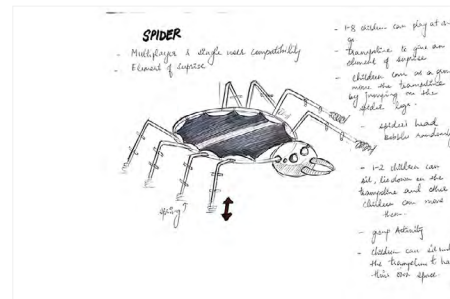 SPIDER
- Multiplayer & single user compatibility
- Element of suprise
- 1-8 children can play at a
go.
- trampoline to give an
element of suprise
- children can as a group
move the trampoline
by jumping on the
spider legs.
- spiders head
bobbles randomly
- 1-2 children can
sit, lie down on the
trampoline and other
children can move
them.
- group Activity
- children can sit
the trampoline to
their own space.
spring